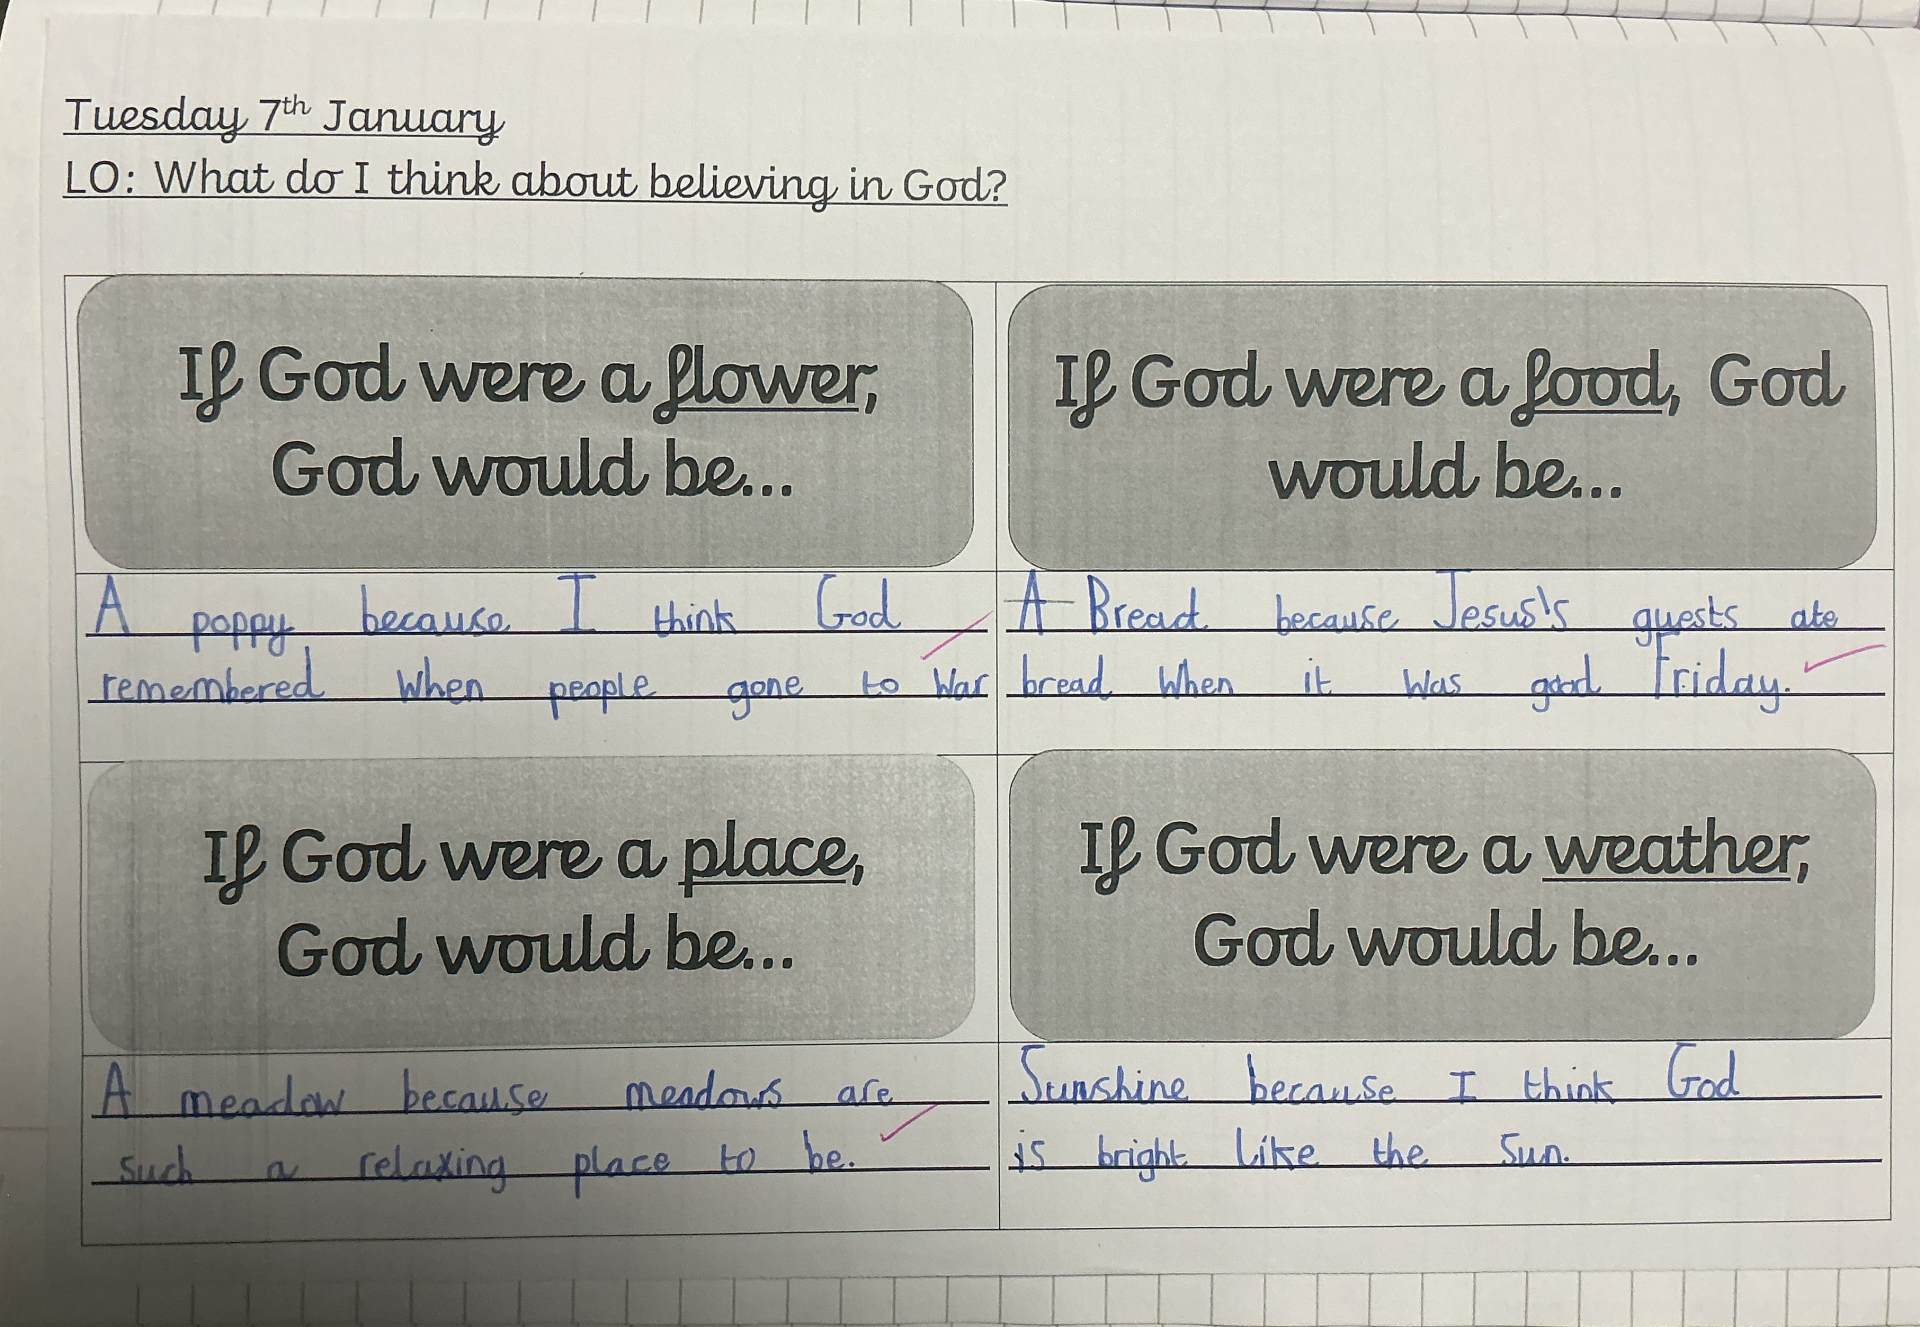 Tuesday 7th January
LO: What do I think about believing in God?
If God were a flower,
God would be...
A poppy because I think God
remembered when people gone to war
If God were a food, God
would be...
A Bread because Jesus's guests ate
bread when it was good Friday.
If God were a place,
God would be...
A meadow because meadows are
such a relaxing place to be.
If God were a weather,
God would be...
Sunshine because I think God
is bright like the sun.